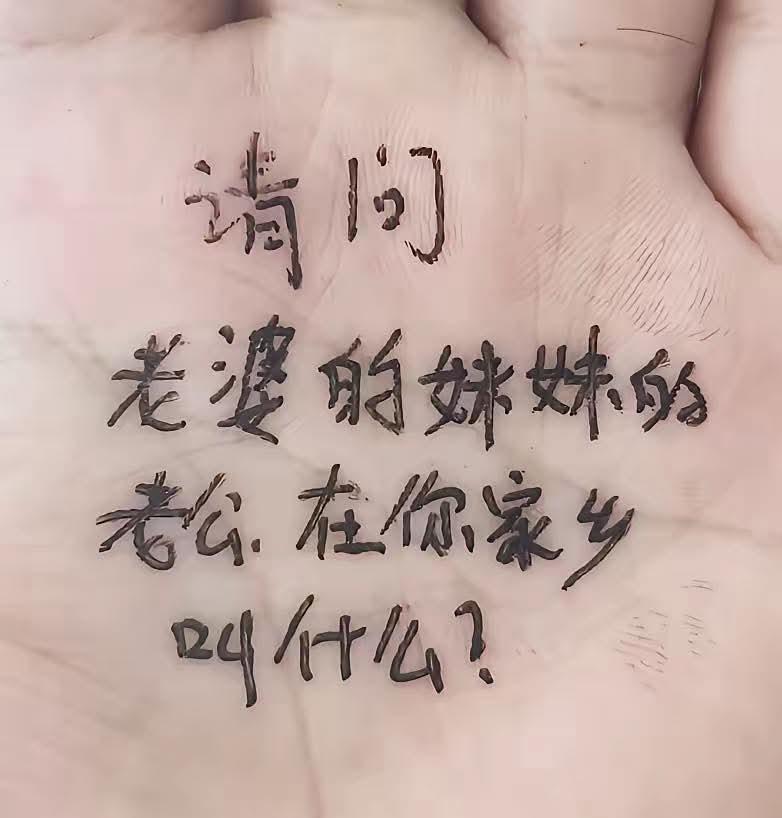 请问
老婆的妹妹的
老公.在你家乡
叫什么?